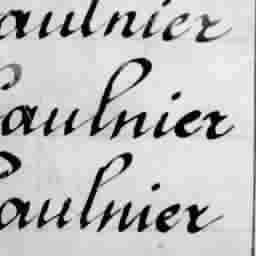 aulnier
aulnier
aulnier